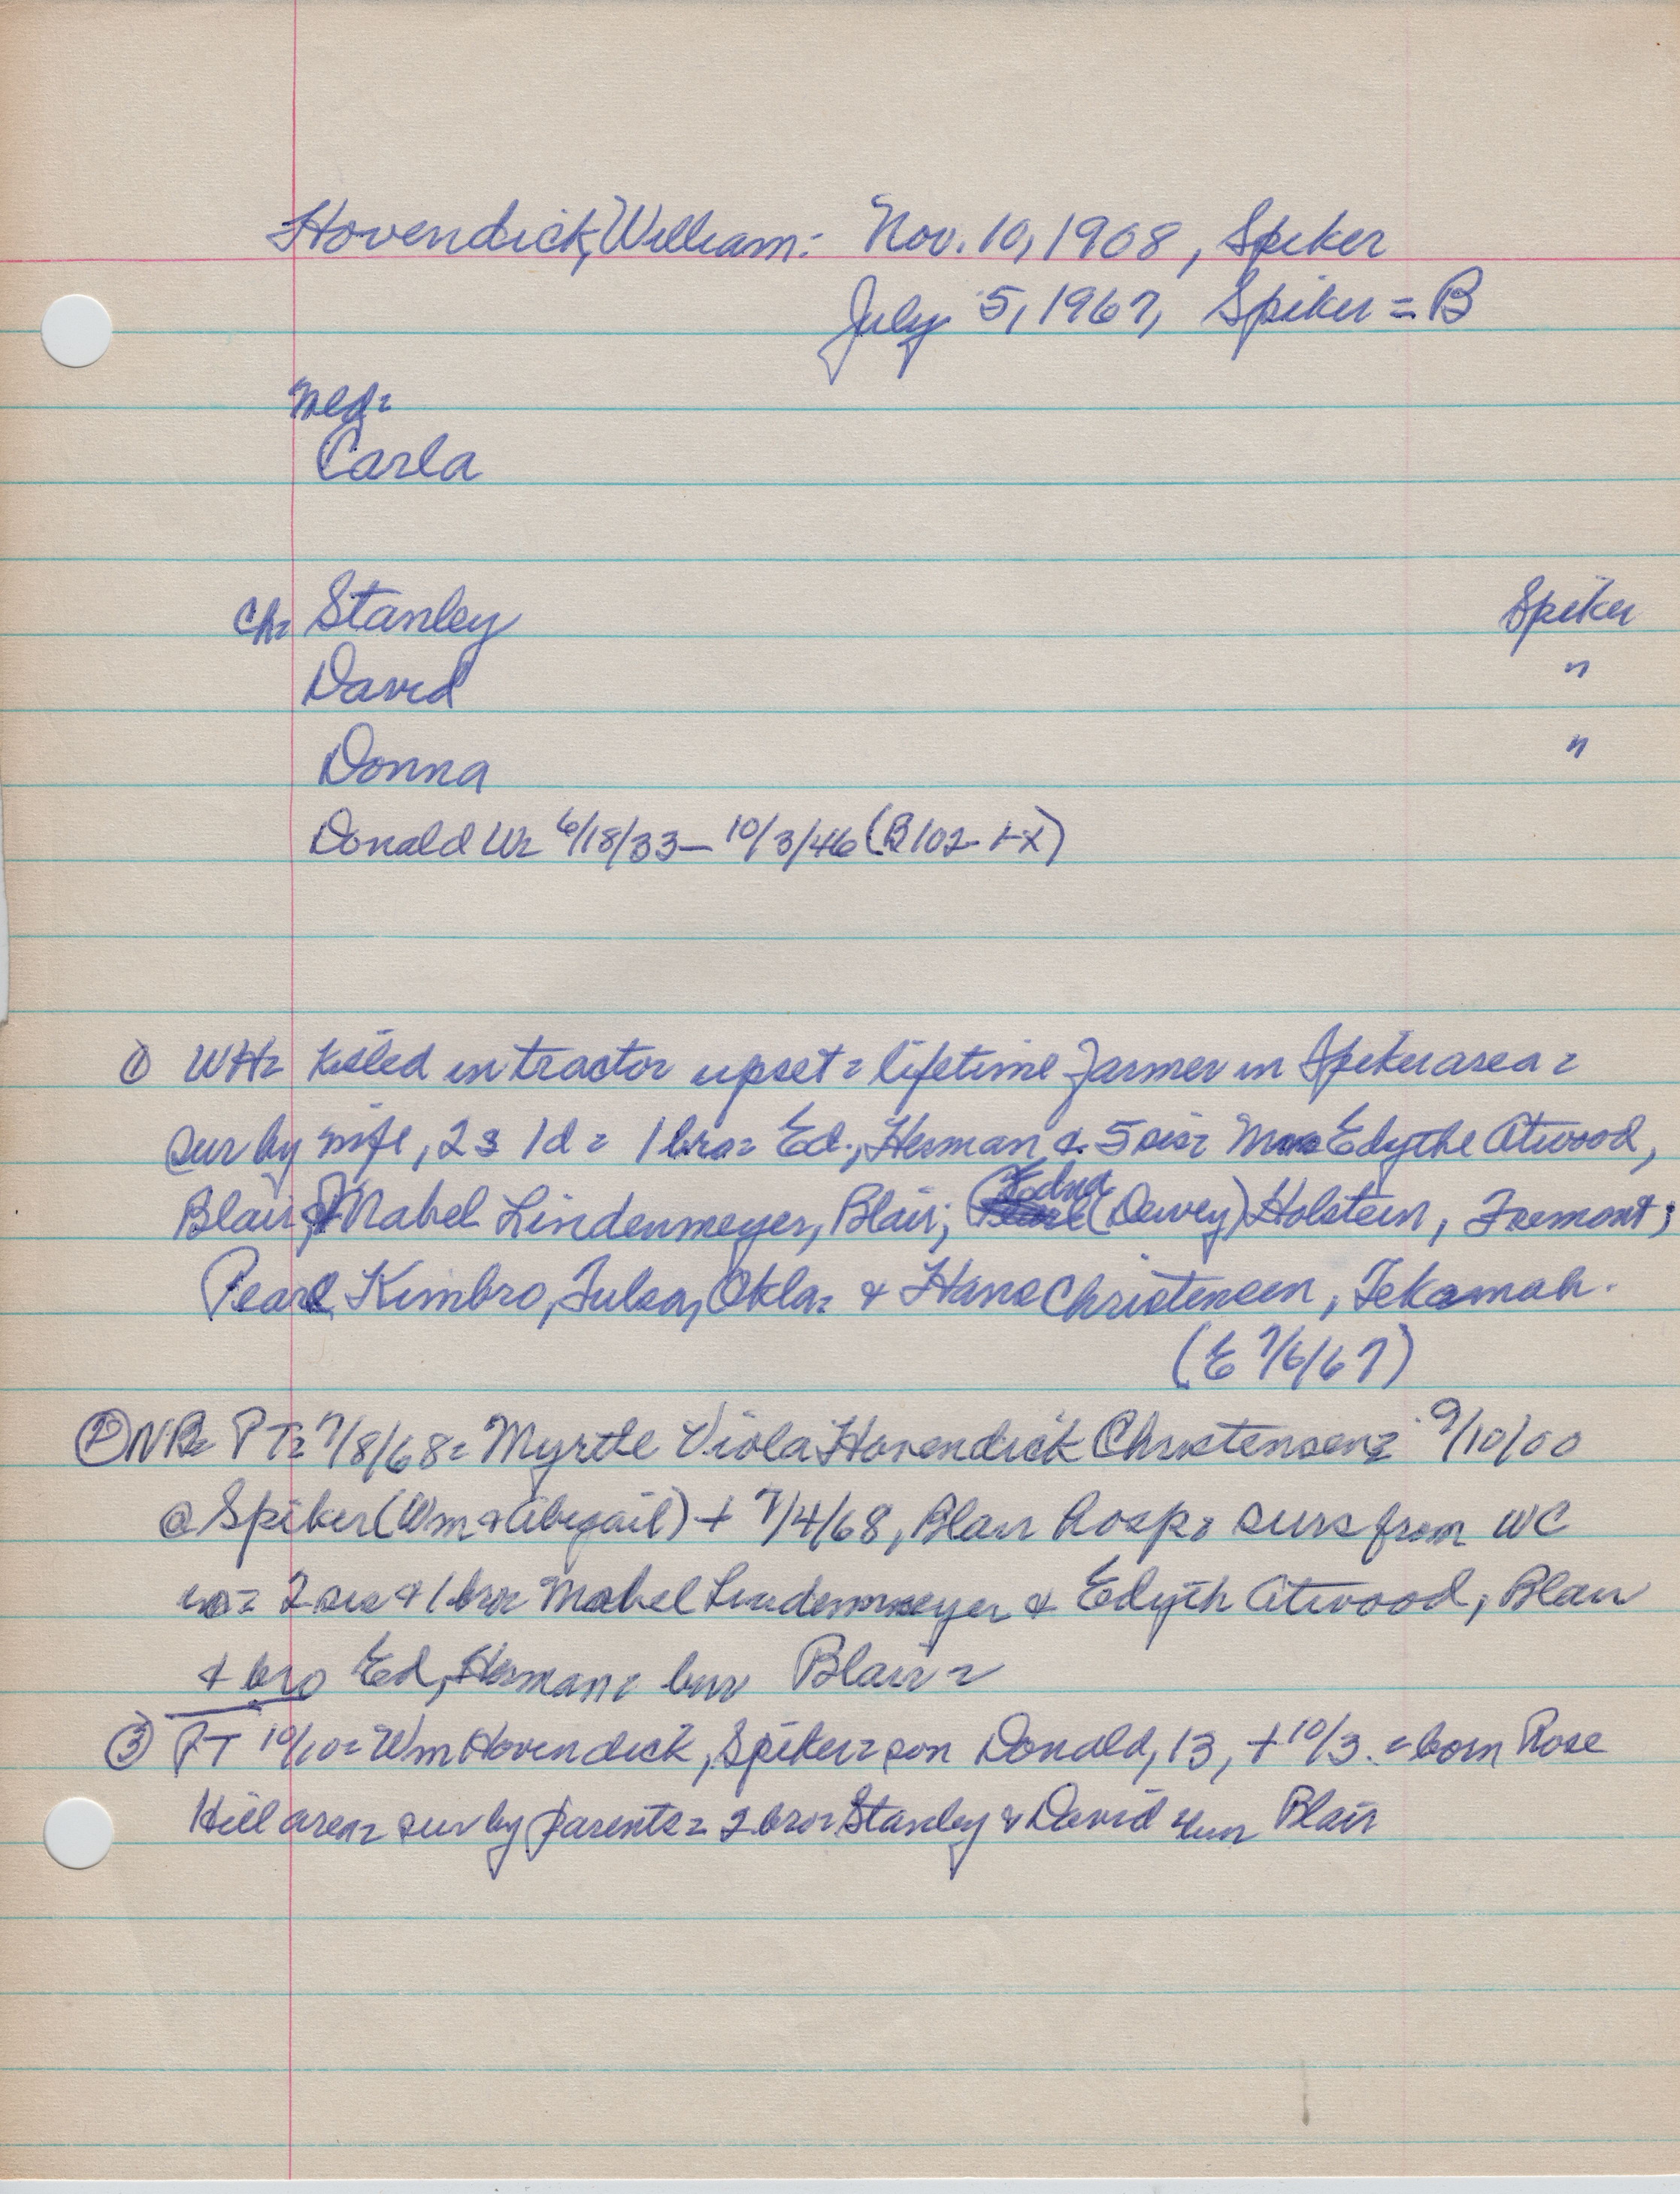 Hovendick, William: Nov. 10, 1908, Spiker
July 5, 1967, Spiker = B
Med=
Carla
Ch= Stanley Spiker
David "
Donna "
Donald W= 6/18/33 — 10/3/46 (B102-
① WH= Killed in tractor upset = lifetime farmer in Spiker area =
sur by wife, 2s 1d = 1 bro= Ed., Herman & 5 sis= Mrs Edythe Atwood,
Blair, Mabel Lindenmeyer, Blair; (Edna (Dewey) Holstein, Fremont;
Pearl Kimbro, Tulsa, Okla= & Hans Christensen, Tekamah.
(E 7/6/67)
② NB= PT= 7/8/68= Myrtle Viola Hovendick Christensen= 9/10/00
@ Spiker (Wm & Abigail) + 7/4/68, Blair Hosp= surs from WC
= 2 sis & 1 bro= Mabel Lindenmeyer & Edyth Atwood, Blair
& bro Ed, Herman= bur Blair =
③ PT 10/10= Wm Hovendick, Spiker= son Donald, 13, + 10/3. = born Rose
Hill area= sur by parents= 2 bro= Stanley & David Blair